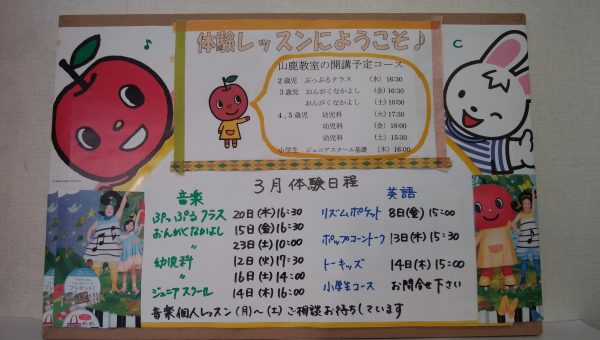 体験レッスンにようこそ♪
山鹿教室の開講予定コース
2歳児 ぷっぷるクラス (木) 16:30
3歳児 おんがくなかよし (金) 16:30
おんがくなかよし (土) 10:00
4,5歳児 幼児科 (火) 17:30
幼児科 (金) 18:00
幼児科 (土) 15:30
小学生 ジュニアスクール基礎 (木) 16:00
3月体験日程
音楽
ぷっぷるクラス 20日(木)16:30
おんがくなかよし 15日(金)16:30
〃 23日(土)10:00
幼児科 12日(火)17:30
〃 16日(土)14:00
ジュニアスクール 14日(木)16:00
英語
リズムポケット 8日(金)15:00
ポップコーントーク 13日(木)15:30
トーキッズ 14日(木)15:00
小学生コース お問合せ下さい
音楽個人レッスン(月)〜(土)ご相談お待ちしています
プレゼント!